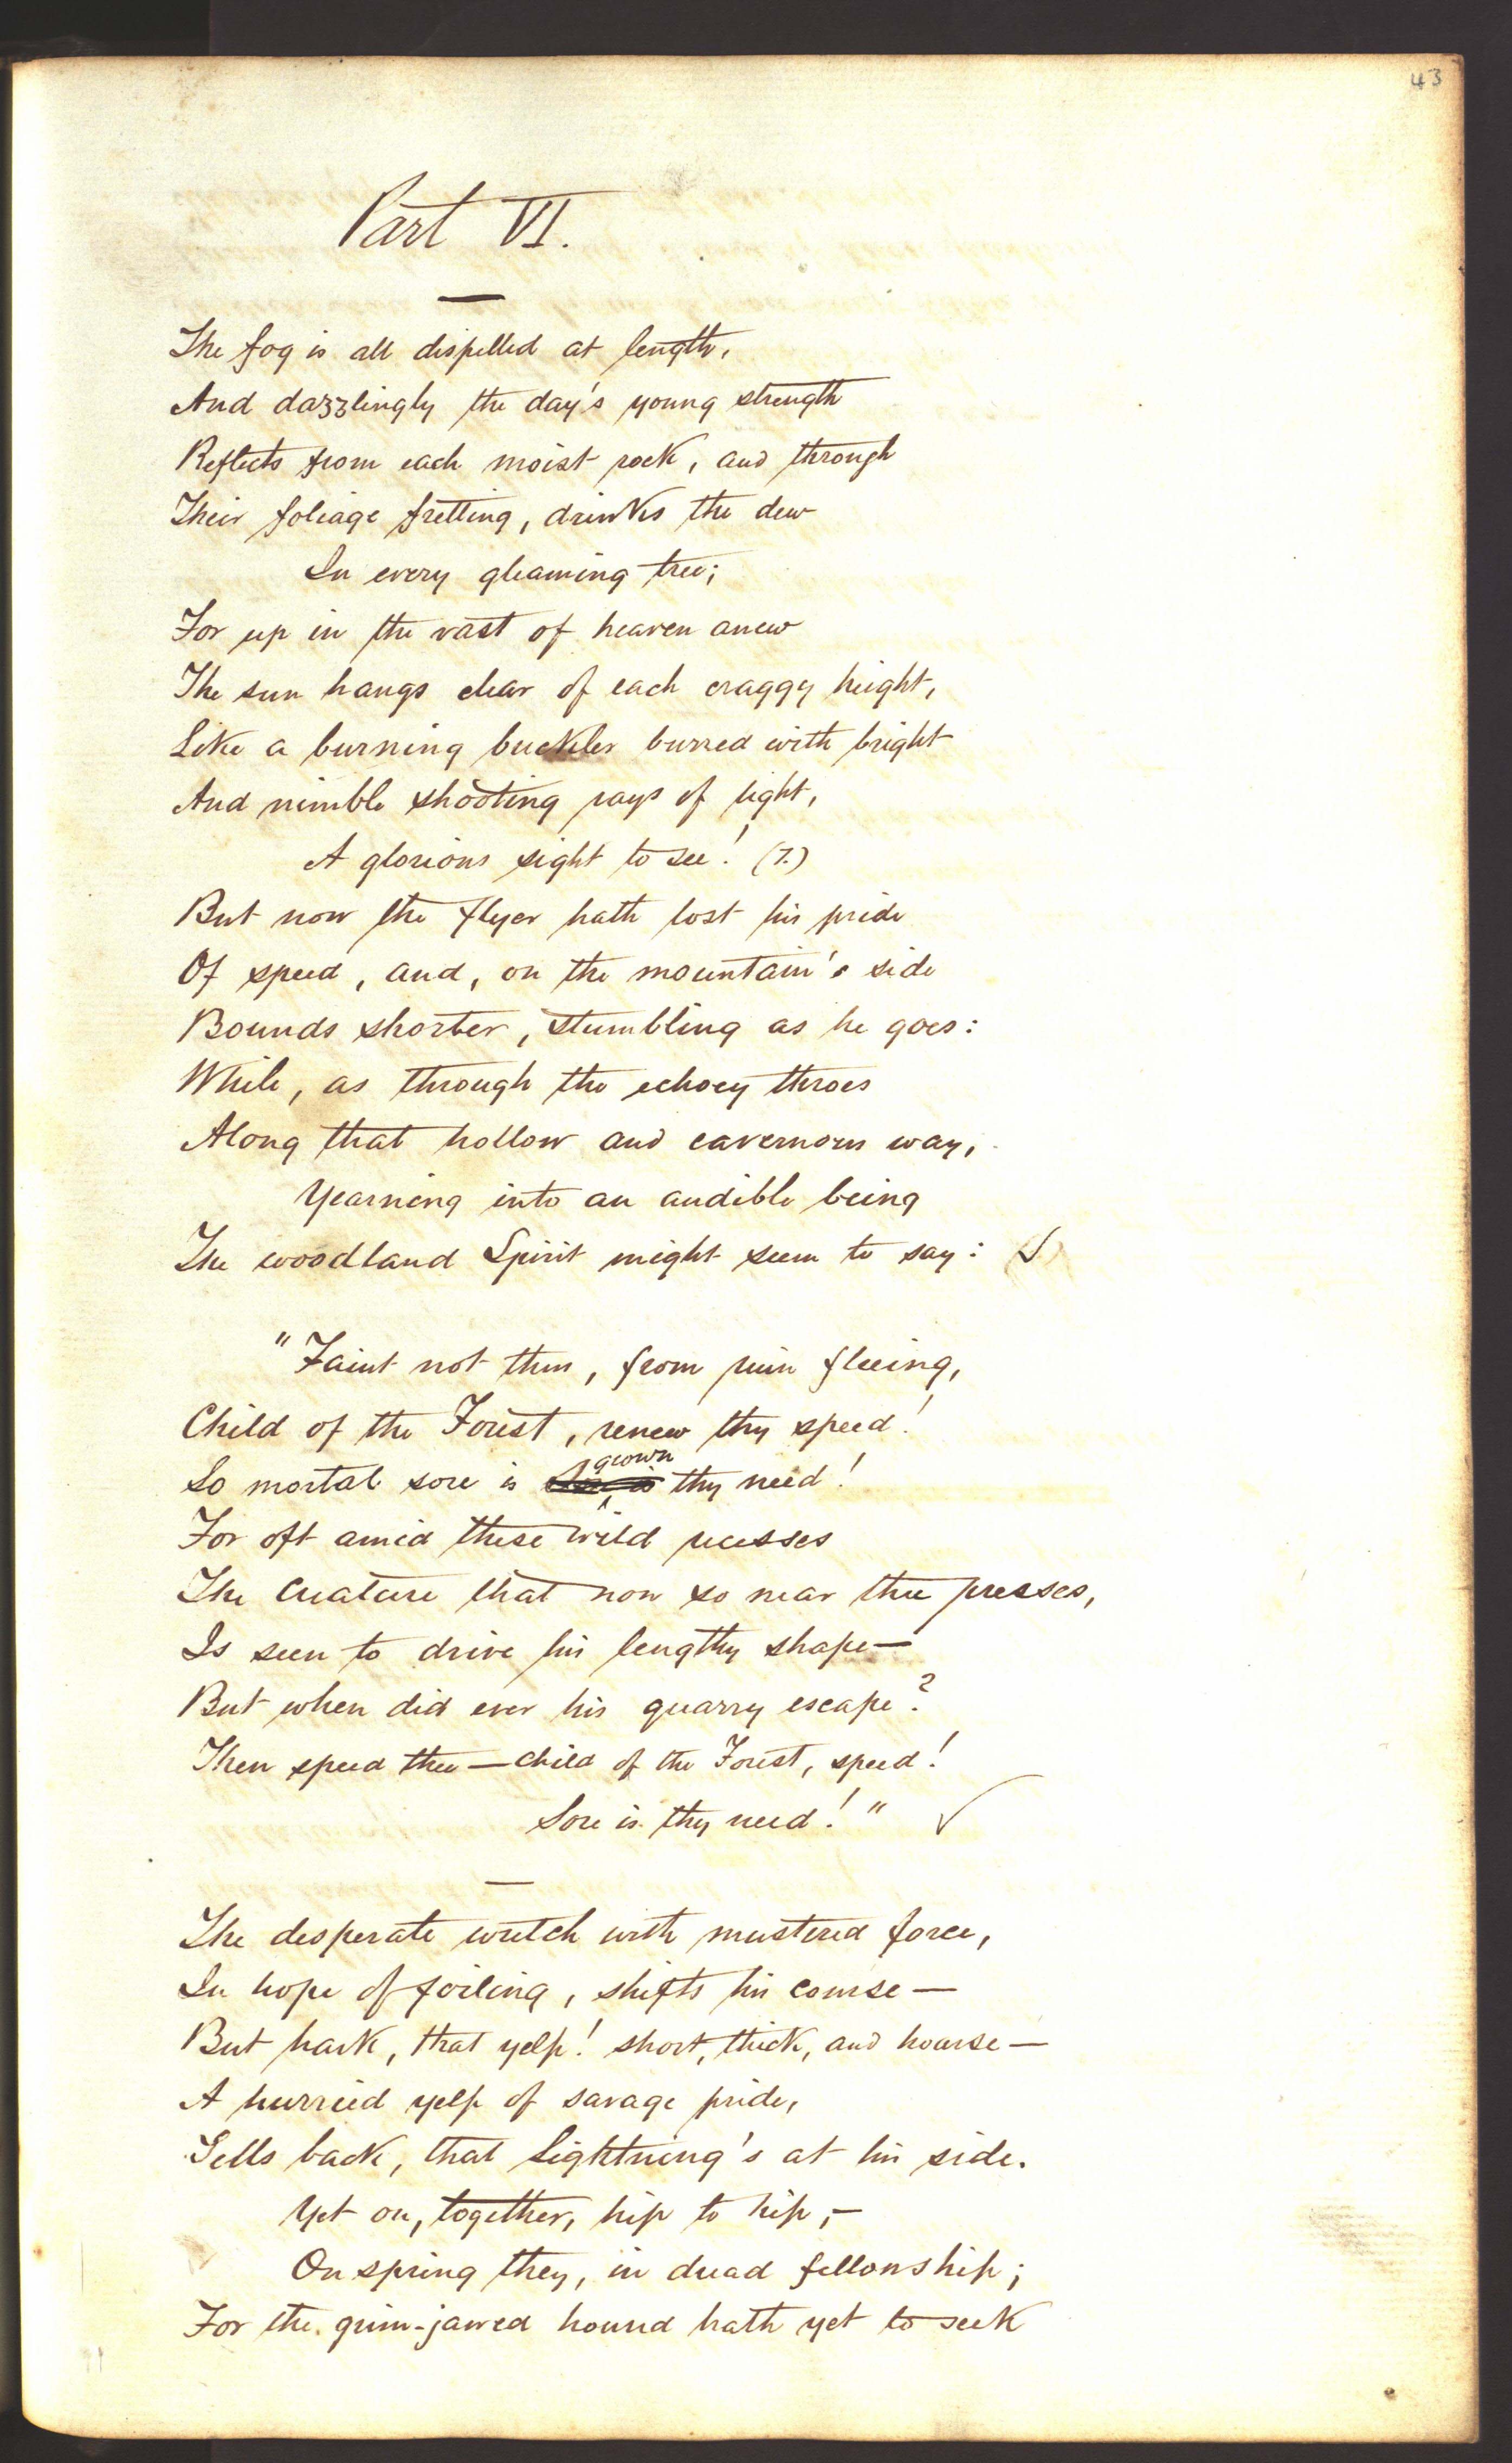 43
Part VI.
The fog is all dispelled at length,
And dazzlingly the day's young strength
Reflects from each moist rock, and through
Their foliage fretting, drinks the dew
In every gleaming tree;
For up in the vast of heaven anew
The sun hangs clear of each craggy height,
Like a burning buckler burred with bright
And nimble shooting rays of light,
A glorious sight to see! (7.)
But now the flyer hath lost his pride
Of speed, and, on the mountain's side
Bounds shorter, stumbling as he goes:
While, as through the echoey throes
Along that hollow and cavernous way,
Yearning into an audible being
The woodland Spirit might seem to say:
"Faint not thou, from ruin fleeing,
Child of the Forest, renew thy speed!
So mortal sore is grown thy need!
For oft amid these wild recesses
The Creature that now so near thee presses,
Is seen to drive his lengthy shape—
But when did ever his quarry escape?
Then speed thee—child of the Forest, speed!
Sore is thy need!" ✓
The desperate wretch with mustered force,
In hope of foiling, shifts his course—
But hark, that yelp! short, thick, and hoarse—
A hurried yelp of savage pride,
Tells back, that Lightning's at his side.
Yet on, together, hip to hip,—
On spring they, in dread fellowship;
For the grim-jawed hound hath yet to seek